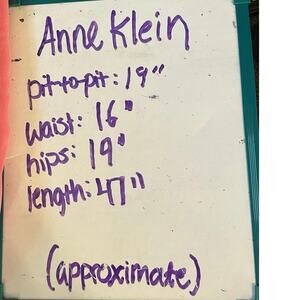 Anne Klein
pit-to-pit: 19"
waist: 16"
hips: 19"
length: 47"
(approximate)